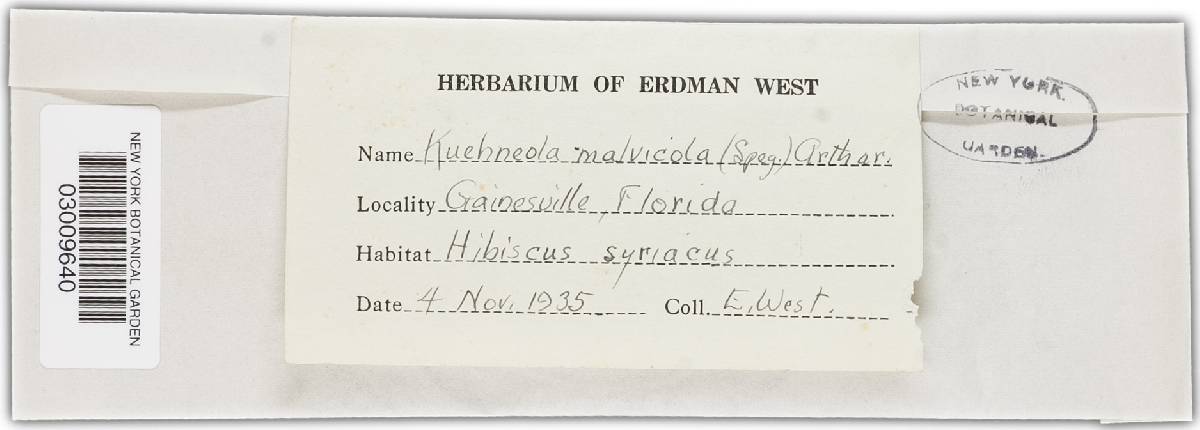 HERBARIUM OF ERDMAN WEST
Name Kuehneola malvicola (Speg.) Arthur.
Locality Gainesville, Florida
Habitat Hibiscus syriacus
Date 4 Nov. 1935 Coll. E. West.
NEW YORK
BOTANICAL
GARDEN
NEW YORK BOTANICAL GARDEN
03009640